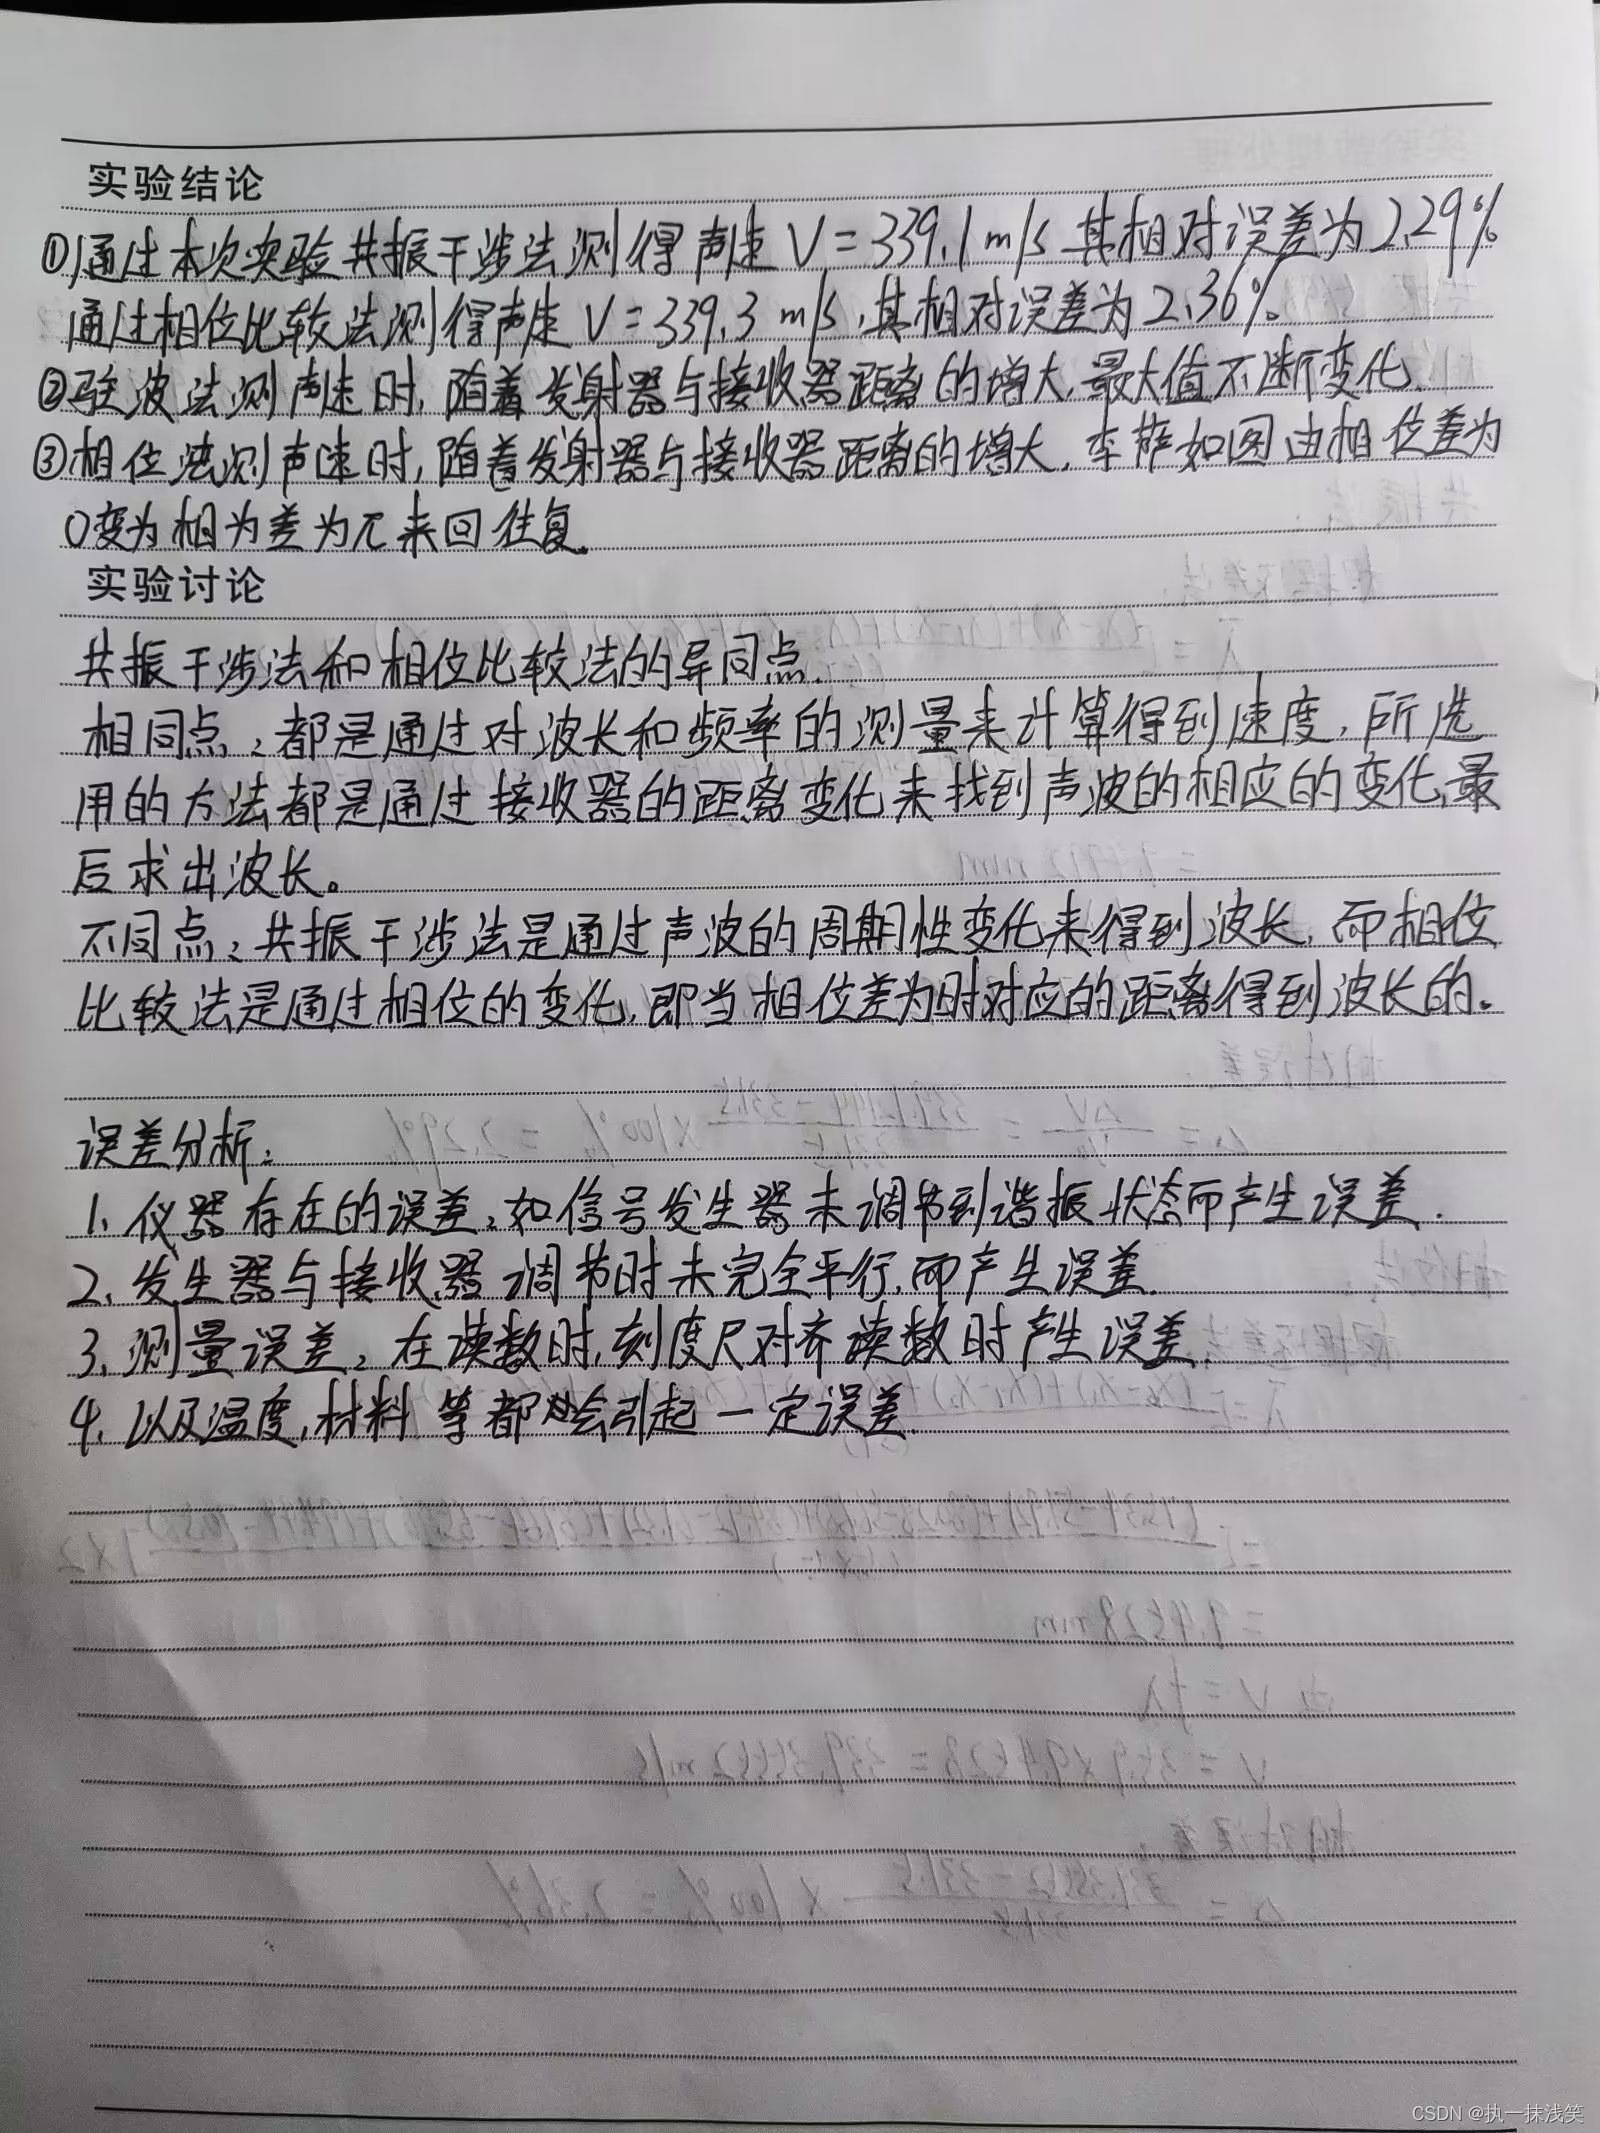 实验结论
①通过本次实验共振干涉法测得声速 V=339.1 m/s 其相对误差为2.29%
通过相位比较法测得声速 V=339.3 m/s,其相对误差为2.36%.
②驻波法测声速时,随着发射器与接收器距离的增大,最大值不断变化.
③相位法测声速时,随着发射器与接收器距离的增大,李萨如图由相位差为
0变为相为差为π来回往复.
实验讨论
共振干涉法和相位比较法的异同点.
相同点:都是通过对波长和频率的测量来计算得到速度,所选
用的方法都是通过接收器的距离变化来找到声波的相应的变化,最
后求出波长。
不同点:共振干涉法是通过声波的周期性变化来得到波长,而相位
比较法是通过相位的变化,即当相位差为时对应的距离得到波长的。
误差分析:
1、仪器存在的误差:如信号发生器未调节到谐振状态而产生误差.
2、发生器与接收器调节时未完全平行,而产生误差.
3、测量误差:在读数时,刻度尺对齐读数时产生误差.
4、以及温度,材料等都会引起一定误差.
CSDN @执一抹浅笑